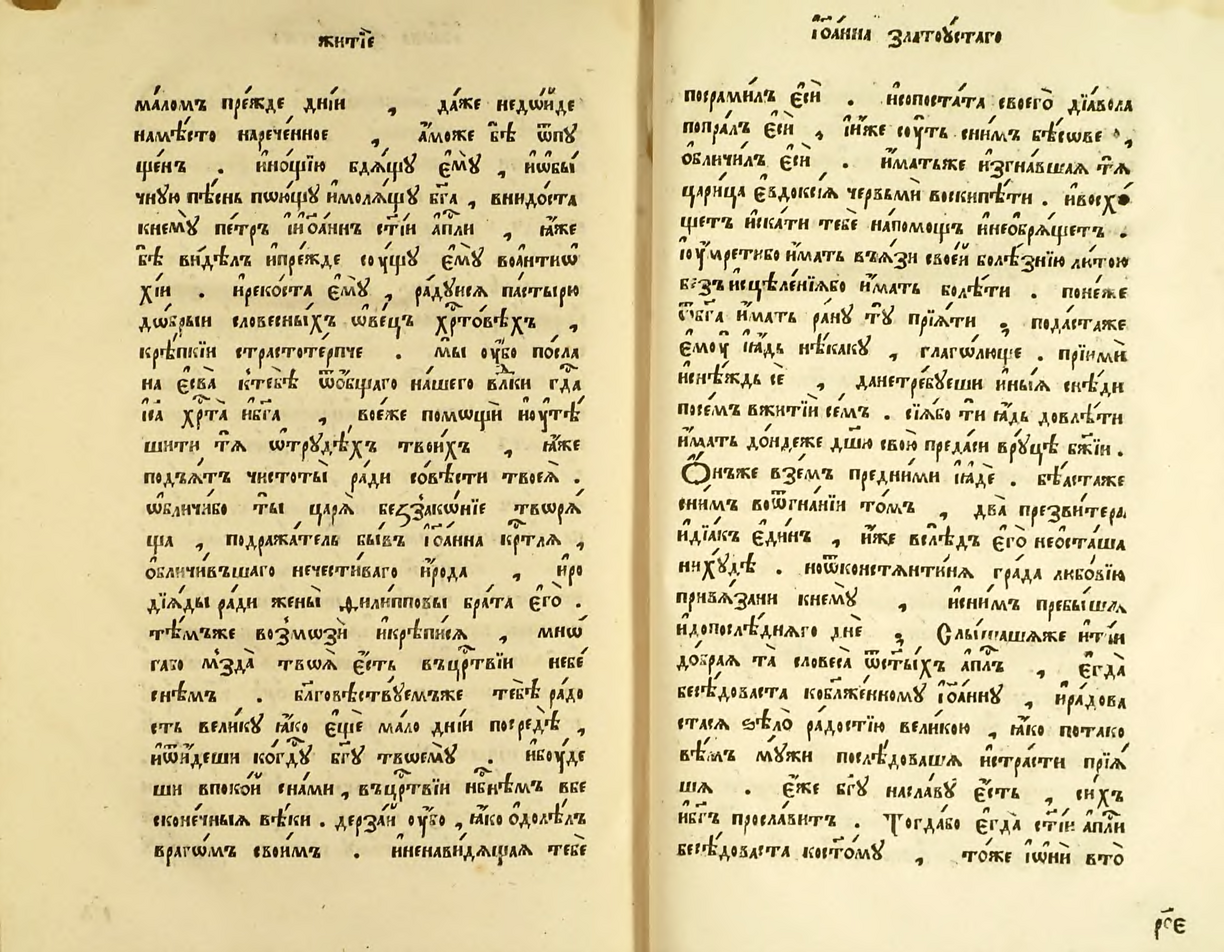 житїе
ма́ломъ пре́жде дні́и , да́же недѡ́йде
намѣ́сто нарече́нное , а҆́може бѣ̀ ѿпꙋ
ще́нъ . и҆но́щїю бдѧ́щꙋ є҆мꙋ̀ , и҆ѡбы́
чную пѣ́снь пою́щꙋ и҆молѧ́щꙋ бг҃а , внидо́ста
кнемꙋ̀ пе́тръ і҆и҆ѡа́ннъ ст҃і́и а҆п҃ли , ꙗ҆́же
бѣ̀ ви́дѣлъ и҆пре́жде со́ущꙋ є҆мꙋ̀ воа҆нтиѡ
хі́и . и҆реко́ста є҆мꙋ̀ , ра́дꙋисѧ па́стырю
дѡ́брыи слове́сныхъ ѡ҆ве́цъ хрⷭ҇то́вѣхъ ,
крѣ́пкїи страстоте́рпче . мы̀ оу҆́бо по́сла
на є҆сва̀ кꙿтебѣ̀ ѿо́бщаго на́шего влⷣки гдⷭ҇а
і҆с҃а хрⷭ҇та̀ и҆бг҃а , во́еже помощѝ и҆оу҆тѣ́
шити тѧ̀ ѡ҆трꙋ́дѣхъ твои́хъ , ꙗ҆́же
подъѧ́тъ чистоты̀ ра́ди со́вѣсти твоеѧ̀ .
ѡ҆бличи́бо ты̀ царѧ̀ беззако́нїе творѧ́
ща , подража́тель бы́въ і҆ѡа́нна крⷭ҇тлѧ ,
ѡ҆бличи́въшаго нечести́ваго и҆́рода , и҆ро
дїѧ́ды ра́ди жены̀ ѳили́пповы бра́та є҆гѡ̀ .
тѣ́мъже возмозѝ и҆крѣпи́сѧ , мнѡ
га́бо мзда̀ твоѧ̀ є҆́сть въцрⷭ҇твїи небе́
снѣмъ . бл҃говѣствꙋ́емъже тебѣ̀ ра́до
сть вели́кꙋ ꙗ҆́ко є҆щѐ ма́ло дні́и посредѣ̀ ,
и҆ѿи́деши ко́гдⷭ҇ꙋ бг҃ꙋ твѡемꙋ̀ . и҆боу́де
ши впоко́й сна́ми , въцрⷭ҇твїи нбⷭ҇нѣмъ вбе
сконе́чныѧ вѣ́ки . дерза́й оу҆́бо , ꙗ҆́ко о҆долѣ́лъ
врагѡ́мъ свои́мъ . и҆ненави́дѧщаѧ тебѐ
і҆ѡа́нна златоꙋ́стаго
посрами́лъ є҆сѝ . и҆сопоста́та своего̀ дїа́вола
попра́лъ є҆сѝ , и҆́иже со́уть сни́мъ бѣ́сове ,
ѡ҆бличи́лъ є҆сѝ . и҆́матьже и҆згна́вшаѧ тѧ̀
цари́ца є҆ѵдоксі́ѧ червьмѝ воскипѣ́ти . и҆восхо́
щетъ и҆ска́ти тебѐ напо́мощь и҆необрѧ́щетъ .
и҆оу҆́мретибо и҆́мать въѧ́зи свое́й болѣ́знїю лю́тою
безъисцѣле́нїѧбо и҆́мать болѣ́ти . поне́же
ѿбг҃а и҆́мать ра́нꙋ тꙋ̀ прїѧ́ти ; пода́стаже
є҆моу̀ ꙗ҆́дь нѣ́какꙋ , глаго́люще . прїимѝ
и҆снѣ́ждь сѐ , данетре́бꙋеши и҆ны́ѧ снѣ́ди
посе́мъ вжитїѝ се́мъ . сїѧ́бо ти ꙗ҆́дь довлѣ́ти
и҆́мать до́ндеже дш҃ю свою̀ преда́си врꙋ́цѣ бж҃їи .
Ѻ҆́нъже взе́мъ пред̾ни́ми ꙗ҆́де . бѣ́астаже
сни́мъ воѿгна́нїи то́мъ , два̀ презви́тера
и҆дїа́къ є҆ди́нъ , и҆́же вслѣ́дъ є҆гѡ̀ неѡста́ша
нихꙋ́дѣ . ноѿконстѧнти́нѧ гра́да любо́вїю
привѧ́зани кнемꙋ̀ , и҆сни́мъ пребы́шѧ
и҆допослѣ́днѧго дн҃е ; Слы́шашѧже и҆ті́и
до́браѧ та̀ словеса̀ ѿст҃ы́хъ а҆п҃лъ , є҆гда̀
бесѣ́доваста кобл҃же́нномꙋ і҆ѡа́ннꙋ , и҆ра́дова
стасѧ ѕѣлѡ̀ ра́достїю вели́кою , ꙗ҆́ко пота́ко
вѣ́мъ мꙋ́жи послѣ́довашѧ и҆стра́сти прїѧ́
шѧ . є҆́же бг҃ꙋ насла́вꙋ є҆́сть , си́хъ
и҆бг҃ъ просла́витъ . Тогда́бо є҆гда̀ ст҃і́и а҆п҃ли
бесѣ́доваста косто́мꙋ , то́же і҆ѡ҆́нѝ вто̀
рⷭ҇є